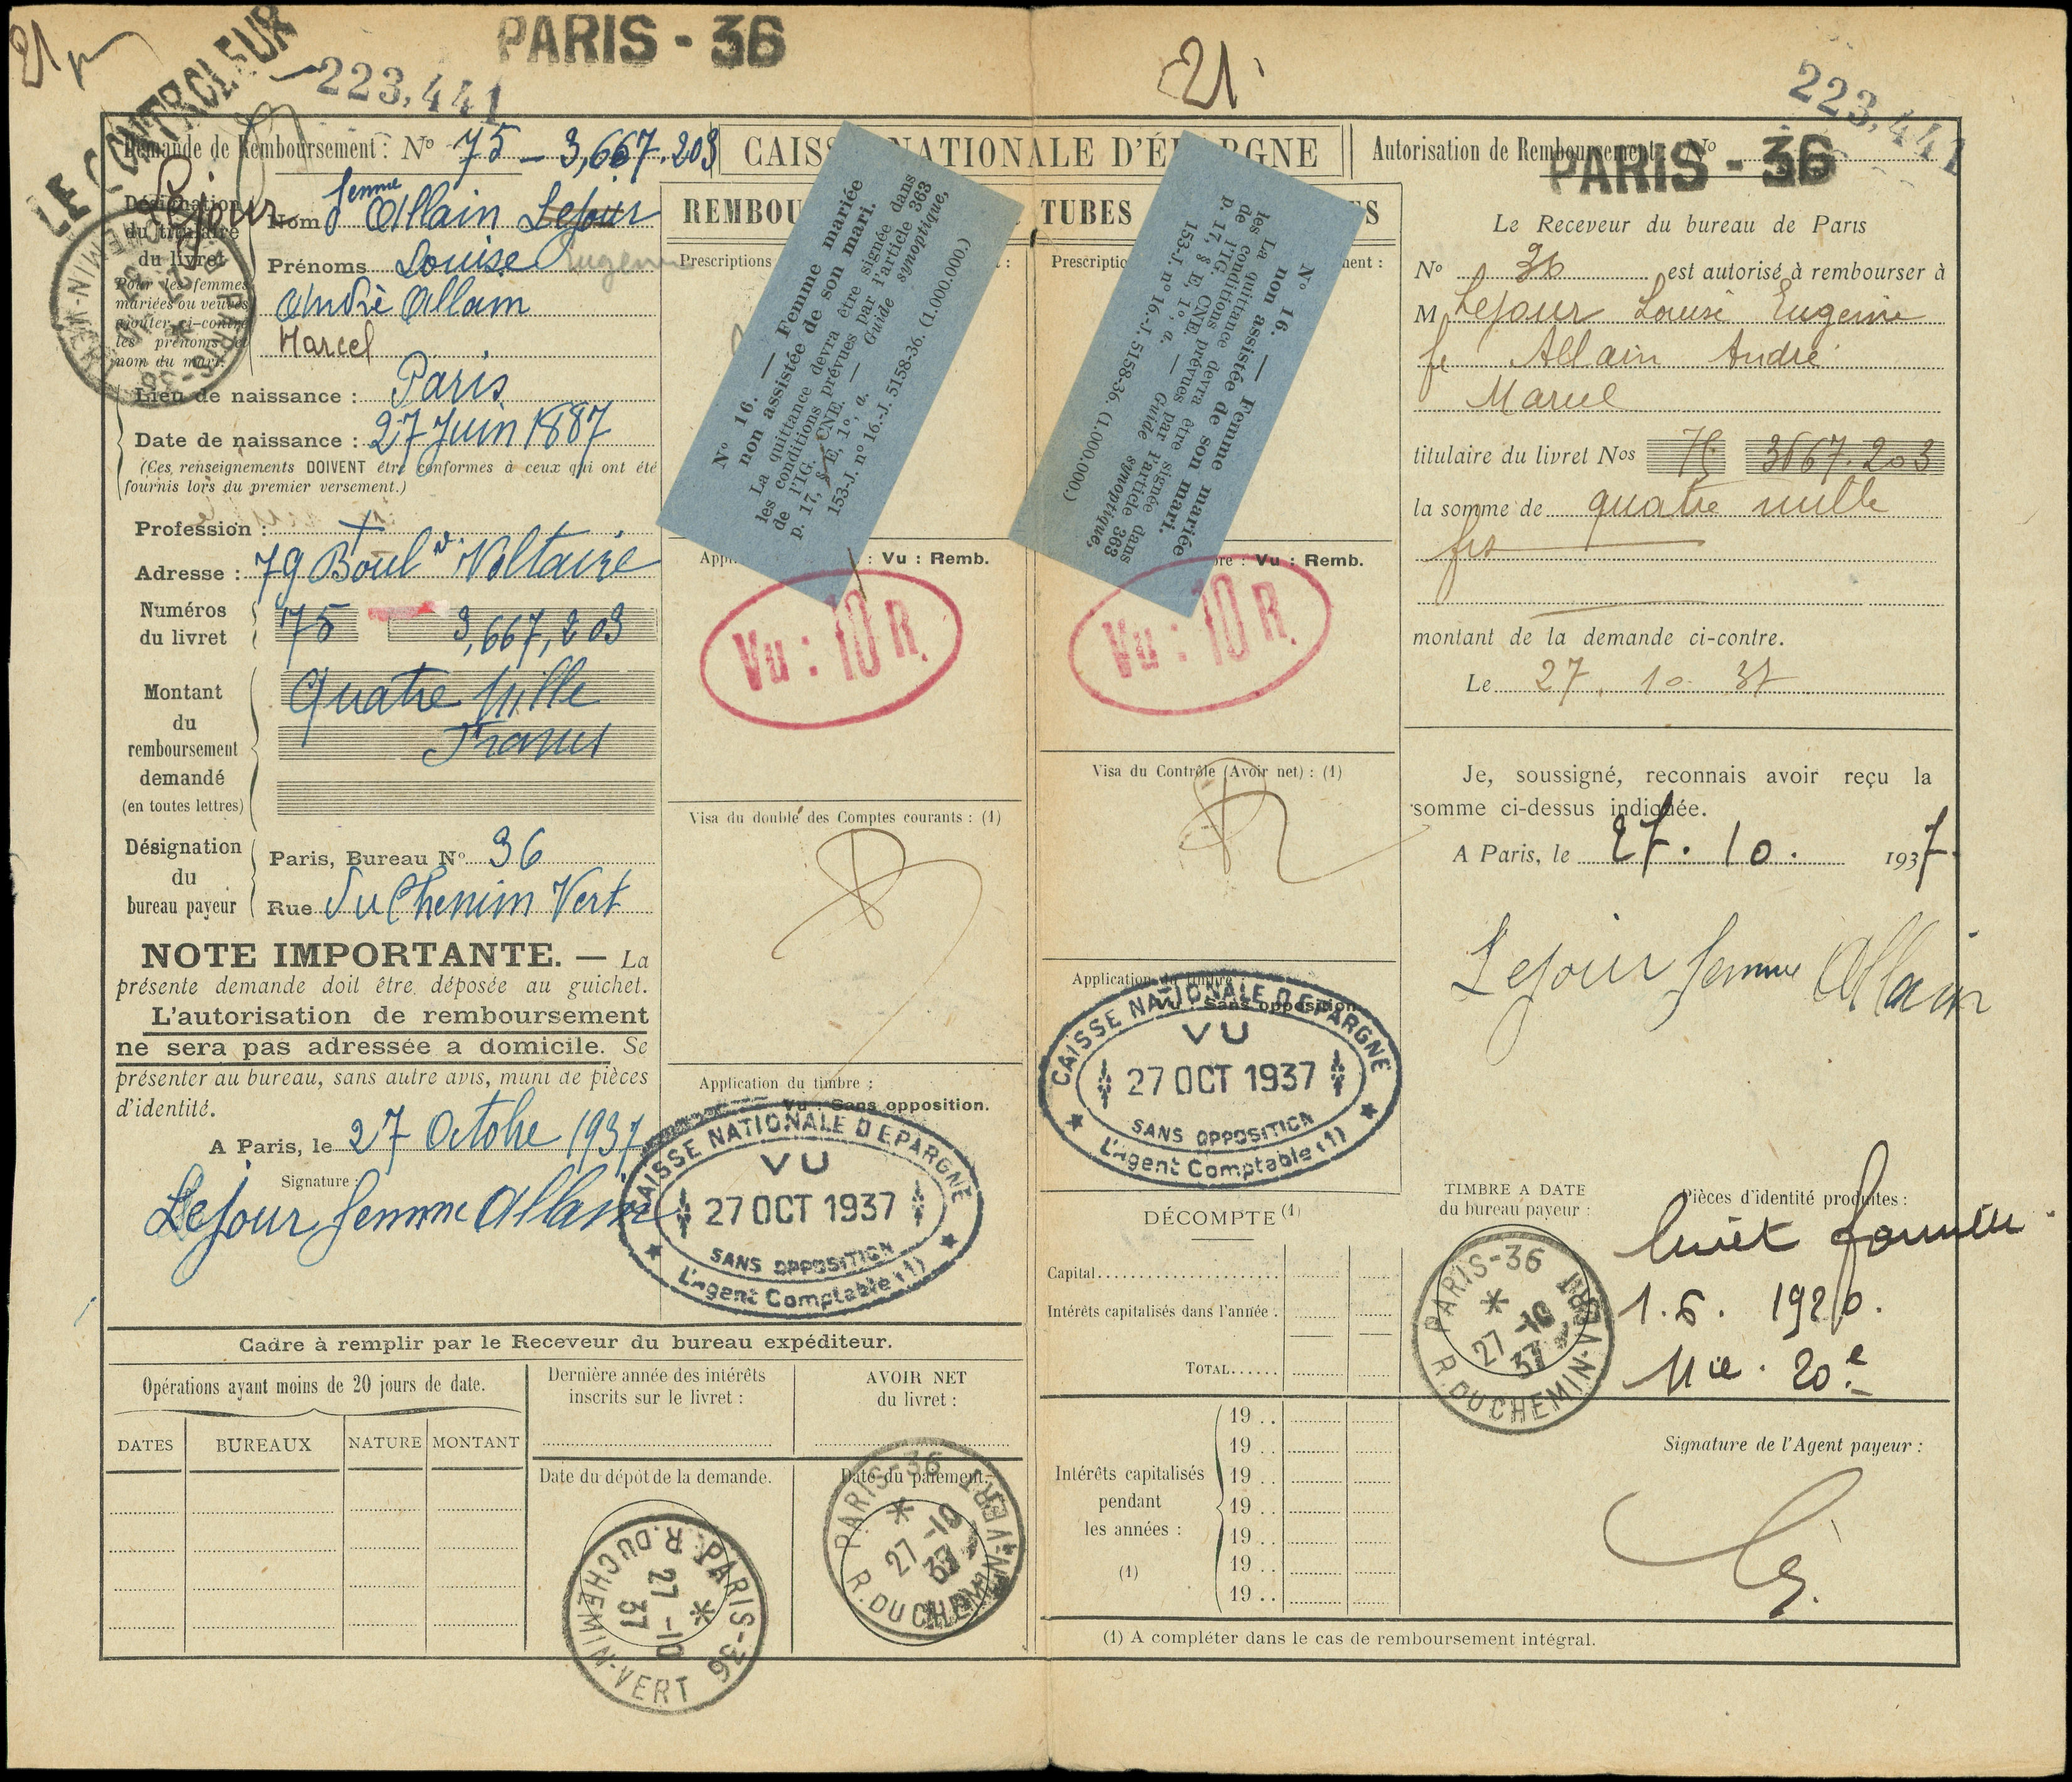 21
PARIS - 36
21
LE CONTROLEUR
223,441
223,441
Demande de Remboursement : No 75 - 3,667.203
CAISSE NATIONALE D'ÉPARGNE
Autorisation de Remboursement No
PARIS - 36
REMBOU
TUBES
ES
Désignation
du titulaire
du livret
Pour les femmes
mariées ou veuves
ajouter ci-contre
les prénoms et
nom du mari.
Lejour
Nom femme Allain Lejour
Prénoms Louise Eugenie
André Allain
Marcel
Lieu de naissance : Paris
Date de naissance : 27 Juin 1887
(Ces renseignements DOIVENT être conformes à ceux qui ont été
fournis lors du premier versement.)
Profession : +
Adresse : 79 Boulv Voltaire
Numéros
du livret
75 3,667,203
Montant
du
remboursement
demandé
(en toutes lettres)
Quatre Mille
Francs
Désignation
du
bureau payeur
Paris, Bureau No 36
Rue du Chemin Vert
NOTE IMPORTANTE. — La
présente demande doit être déposée au guichet.
L'autorisation de remboursement
ne sera pas adressée a domicile. Se
présenter au bureau, sans autre avis, muni de pièces
d'identité.
A Paris, le 27 Octobre 1937
Signature :
Lejour femme Allain
Prescriptions
No 16. — Femme mariée
non assistée de son mari.
La quittance devra être signée dans
les conditions prévues par l'article 363
de l'IG. CNE. — Guide synoptique,
p. 17, § E, 1o, a.
153-J. no 16.-J. 5158-36. (1.000.000.)
: Vu : Remb.
Vu : 10 R.
Visa du double des Comptes courants : (1)
Application du timbre :
Vu : Sans opposition.
CAISSE NATIONALE D EPARGNE
VU
27 OCT 1937
SANS OPPOSITION
L'Agent Comptable (1)
Prescriptio
ment :
No 16. — Femme mariée
non assistée de son mari.
La quittance devra être signée dans
les conditions prévues par l'article 363
de l'IG. CNE. — Guide synoptique,
p. 17, § E, 1o, a.
153-J. no 16.-J. 5158-36. (1.000.000.)
bre : Vu : Remb.
Vu : 10 R.
Visa du Contrôle (Avoir net) : (1)
Application du timbre :
Vu : Sans opposition
CAISSE NATIONALE D EPARGNE
VU
27 OCT 1937
SANS OPPOSITION
L'Agent Comptable (1)
Le Receveur du bureau de Paris
No 36 est autorisé à rembourser à
M Lejour Louise Eugenie
fe Allain André
Marcel
titulaire du livret Nos 75 3667.203
la somme de quatre mille
frs
montant de la demande ci-contre.
Le 27. 10. 37
Je, soussigné, reconnais avoir reçu la
somme ci-dessus indiquée.
A Paris, le 27. 10. 1937.
Lejour femme Allain
TIMBRE A DATE
du bureau payeur :
PARIS-36
27 -10
37
R. DU CHEMIN-VERT
Pièces d'identité produites :
livret famille
1.6. 1920.
Mie. 20e
Signature de l'Agent payeur :
DÉCOMPTE (1)
Capital
Intérêts capitalisés dans l'année .
TOTAL
Intérêts capitalisés
pendant
les années :
(1)
19 . .
19 . .
19 . .
19 . .
19 . .
19 . .
19 . .
(1) A compléter dans le cas de remboursement intégral.
Cadre à remplir par le Receveur du bureau expéditeur.
Opérations ayant moins de 20 jours de date.
DATES BUREAUX NATURE MONTANT
Dernière année des intérêts
inscrits sur le livret :
AVOIR NET
du livret :
Date du dépôt de la demande.
PARIS-36
27 -10
37
R. DU CHEMIN-VERT
Date du paiement.
PARIS-36
27 -10
37
R. DU CHEMIN-VERT